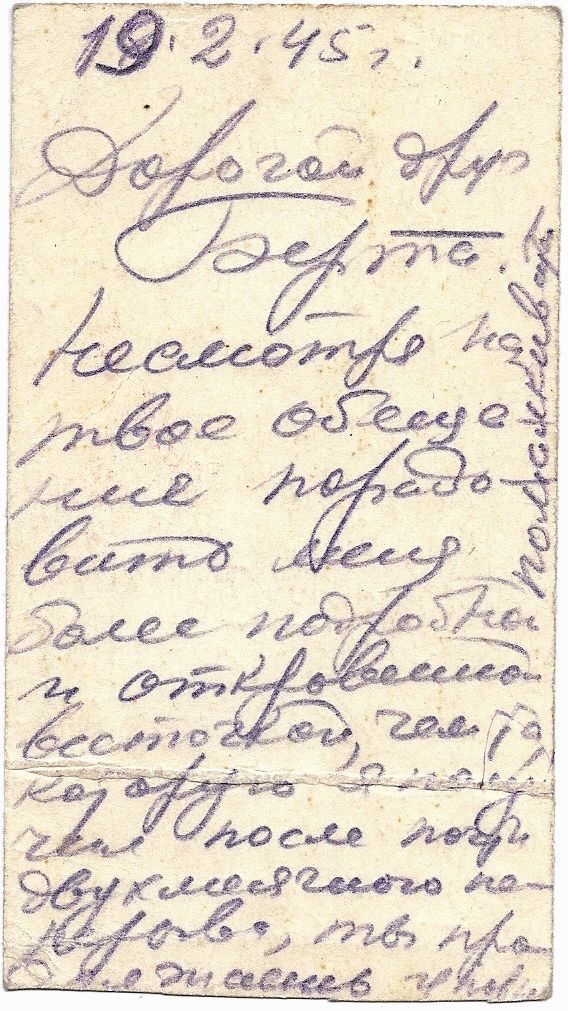 19.2.45 г.
Дорогой друг
Берта.
Несмотря на
твое обеща-
ние порадо-
вать меня
более подробной
и откровенной
весточкой, чем та,
которую я полу-
чил после почти
двухмесячного пе-
рерыва, ты про-
должаешь